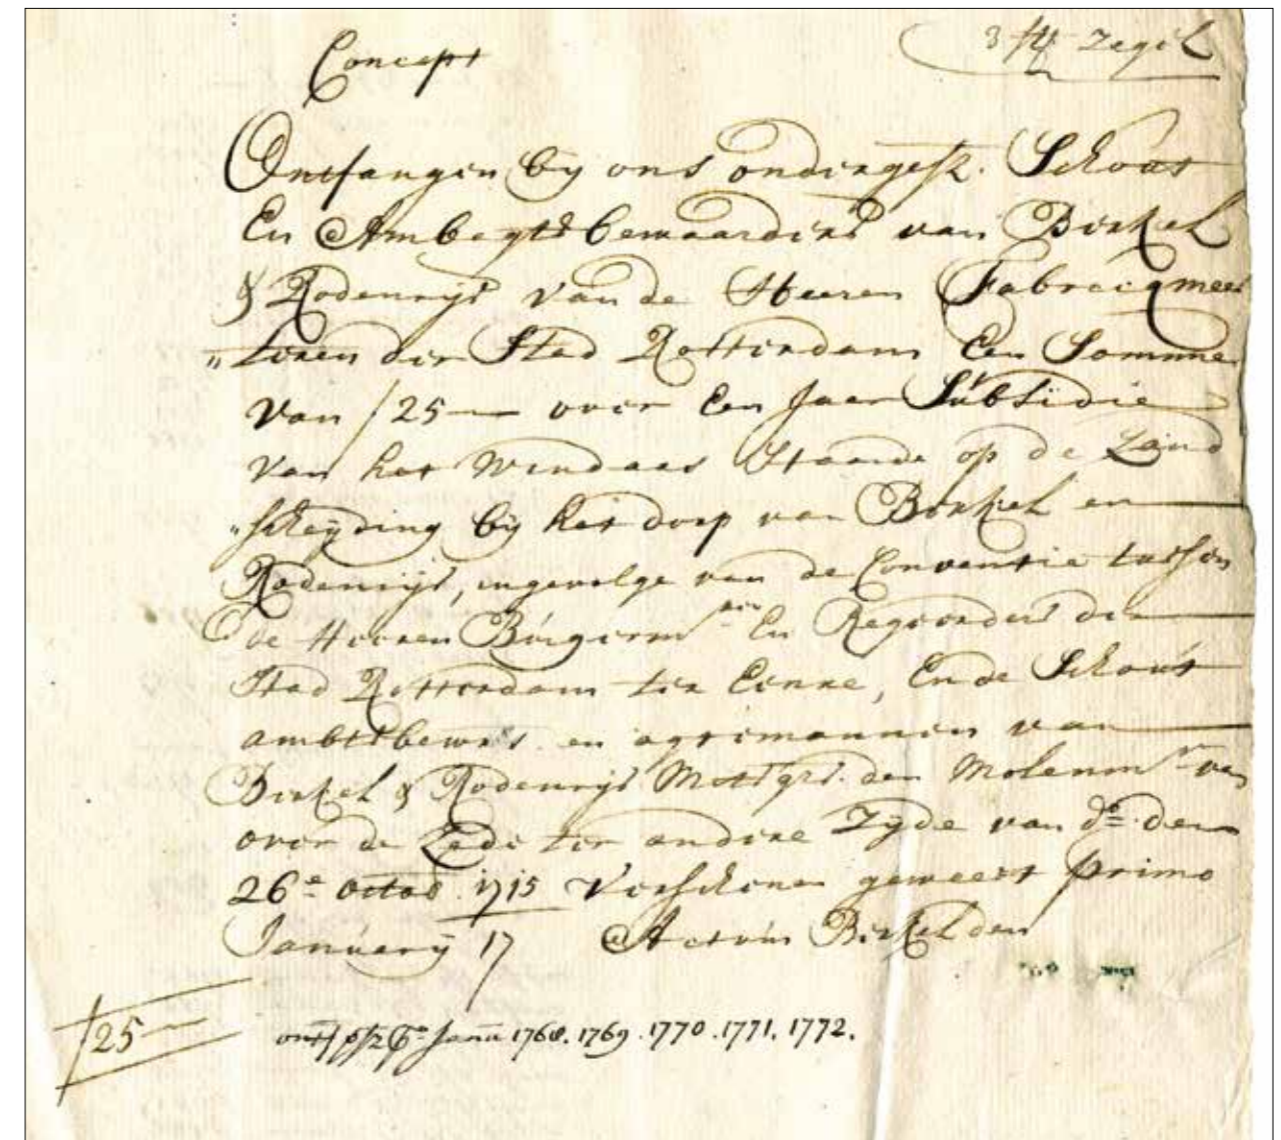 Concept
3 st. Zegel
Ontfangen by ons ondergesz. Schout
En Ambagtsbewaarders van Berkel
& Rodenrijs van de Heeren Fabrecqmees
„teren der Stad Rotterdam Een Somme
van ƒ 25 — over Een Jaar Subsidie
van het Windaas Staande op de Land
„scheyding bij het dorp van Berkel en
Rodenrijs, ingevolge van de Conventie tussen
de Heeren Burgermren En Regeerders der
Stad Rotterdam ter Eenre, En de Schout
ambtsbewrs. en van
Berkel & Rodenrijs den Molenmr van
over de Zede ter andere Zyde van do. den
26e octob. 1715 Verschenen geweest primo
January 17 Actum Berkel den
ƒ 25 —
ontf Janu 1768. 1769. 1770. 1771. 1772.